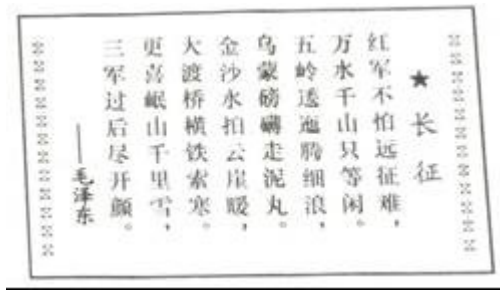 ★ 长征
红军不怕远征难，
万水千山只等闲。
五岭逶迤腾细浪，
乌蒙磅礴走泥丸。
金沙水拍云崖暖，
大渡桥横铁索寒。
更喜岷山千里雪，
三军过后尽开颜。
——毛泽东